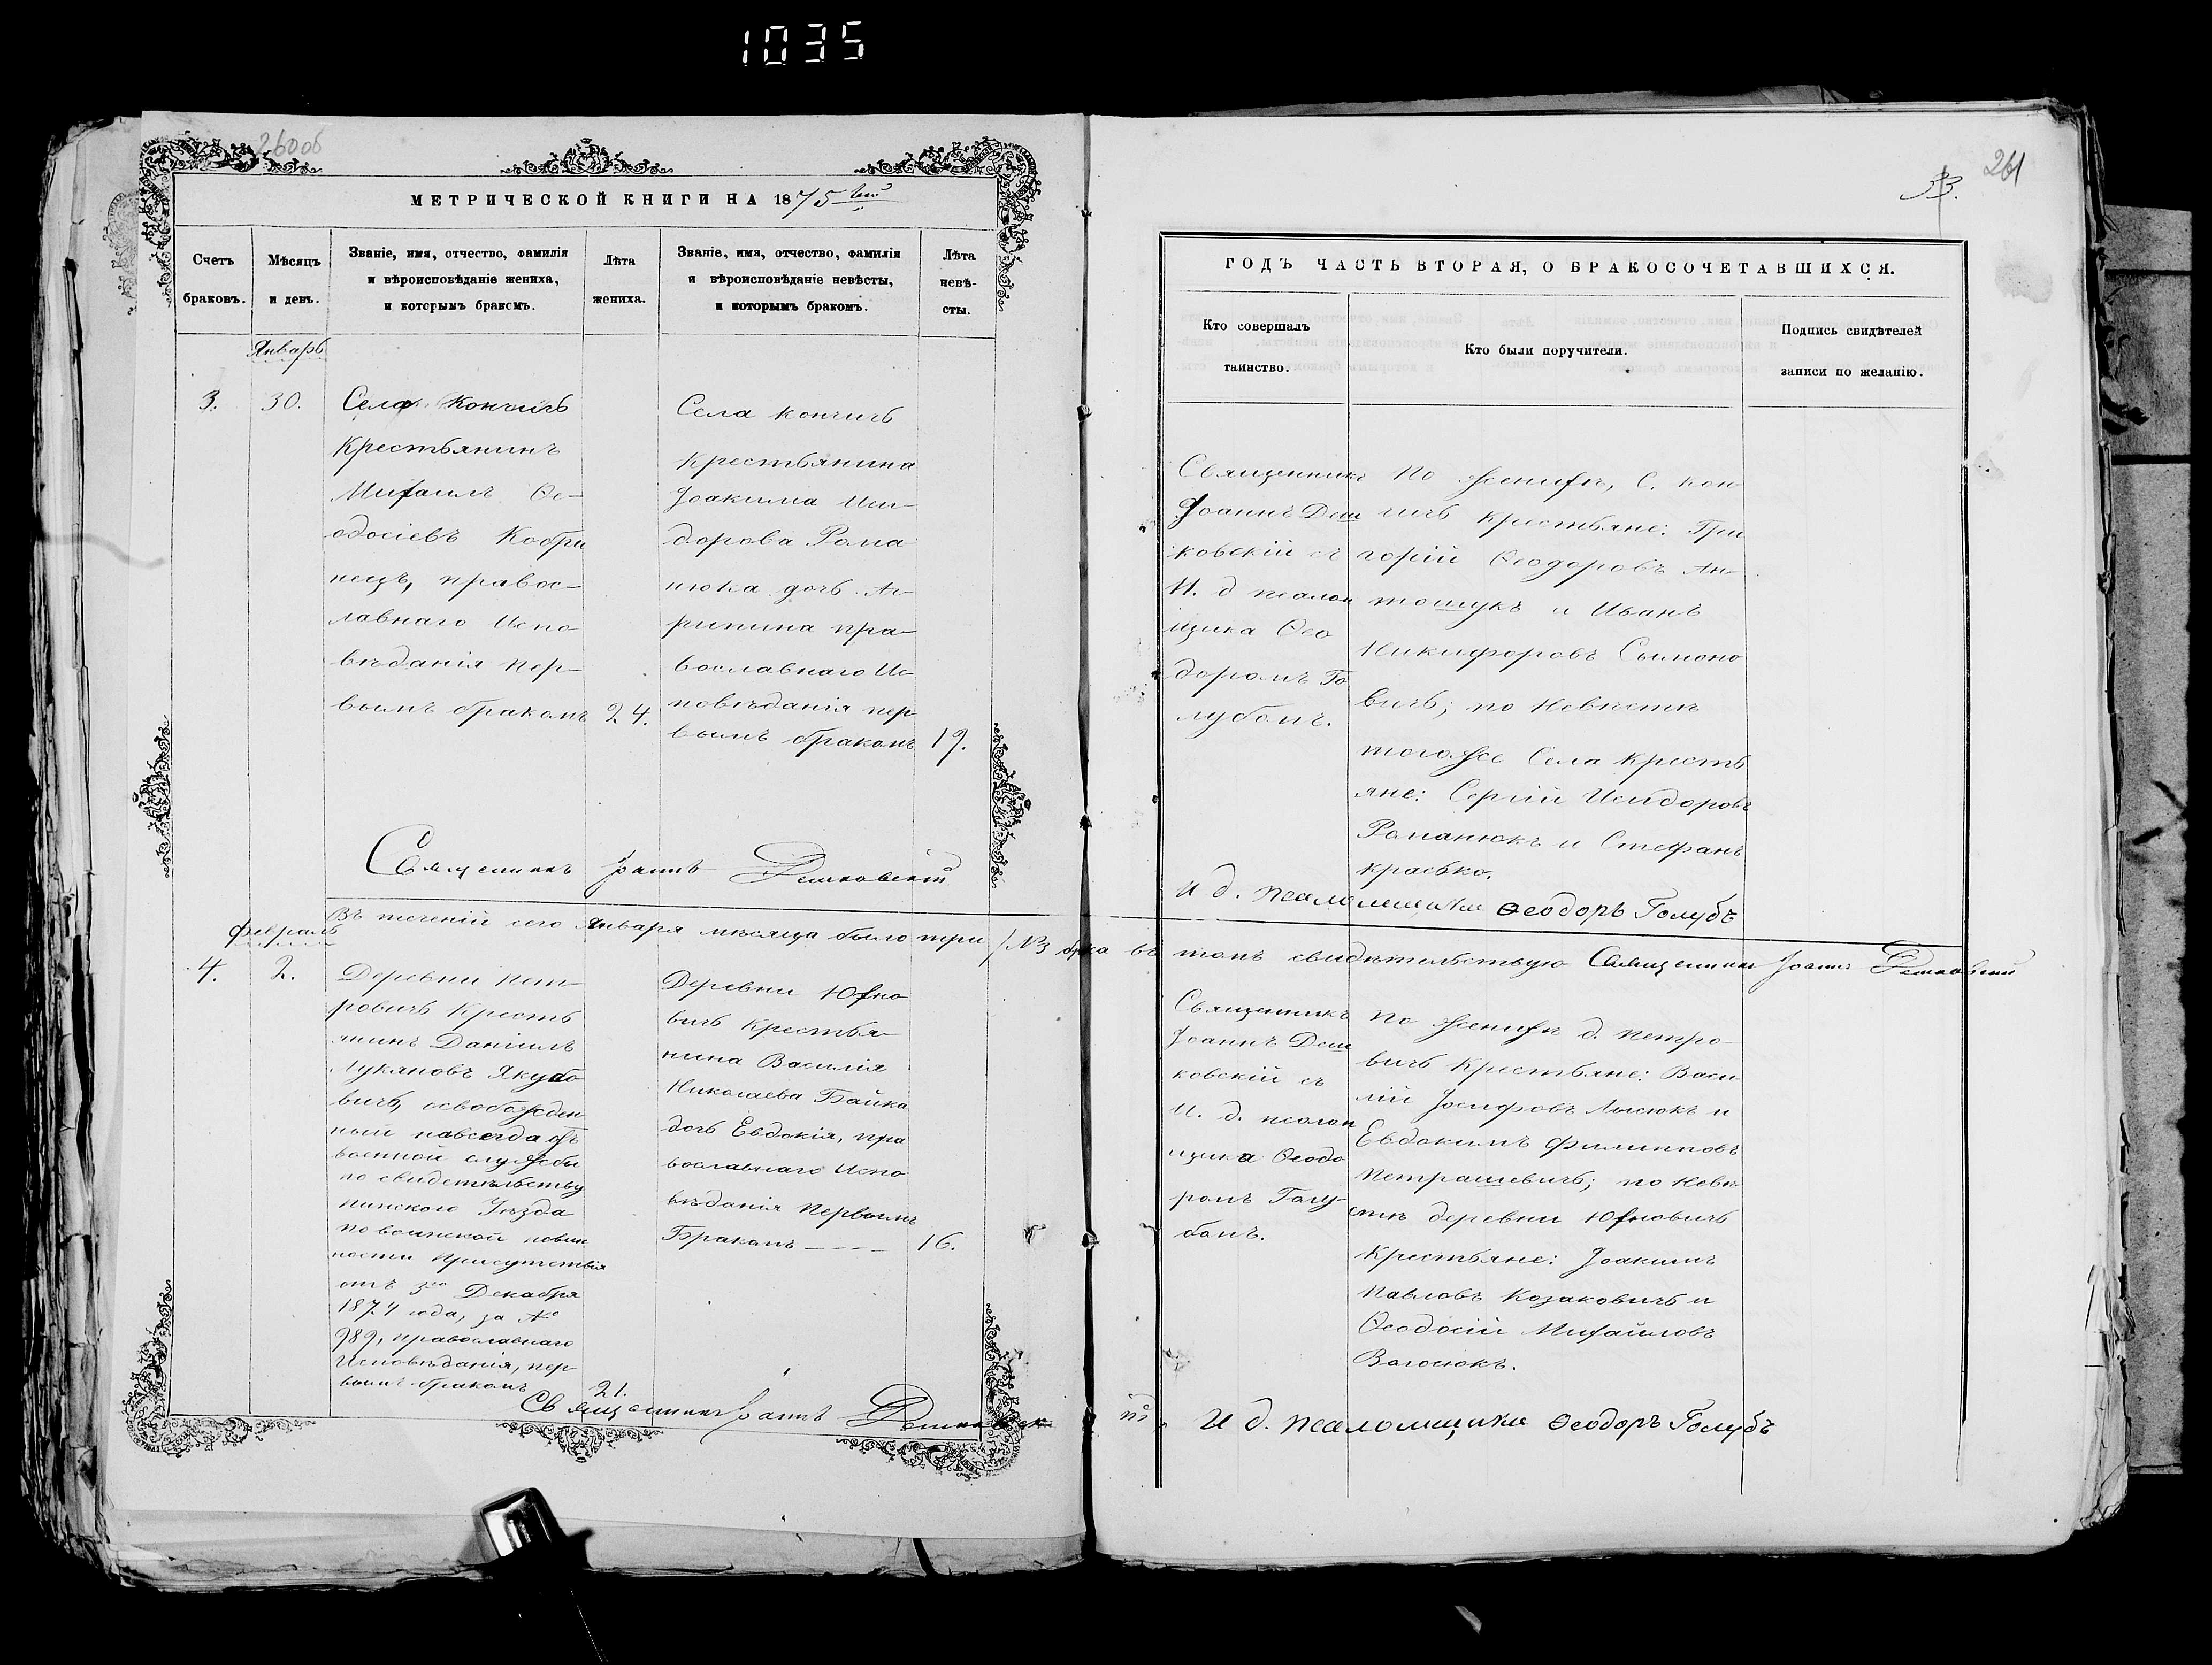 1035
260об
МЕТРИЧЕСКОЙ КНИГИ НА 1875
Счетъ браковъ.
Мѣсяцъ и день.
Званіе, имя, отчество, фамилія и вѣроисповѣданіе жениха, и которымъ бракомъ.
Лѣта жениха.
Званіе, имя, отчество, фамилія и вѣроисповѣданіе невѣсты, и которымъ бракомъ.
Лѣта невѣ-
сты.
Январь
3.
30.
Села Кончичь
Крестьянинъ
Михаилъ Ѳе-
одосіевъ Кобри
нецъ, правос-
лавнаго Испо
вѣданія пер-
вымъ бракомъ
24.
Села Кончичь
Крестьянина
Іоакима Иси-
дорова Рома
нюка дочь Аг-
рипина пра-
вославнаго Ис-
повѣданія пер
вымъ бракомъ
19.
Священникъ Іоаннъ Дешковскій
Въ теченіи сего Января мѣсяца было три /№3 брака въ томъ свидѣтельствую Священникъ Іоаннъ Дешковскій
Февраль
4.
2.
Деревни Пет-
ровичь Кресть
янинъ Даніилъ
Лукяновъ Якубо
вичь, освобожден
ный навсегда отъ
военной службы
по свидѣтельству
Пинского Уѣзда
по воинской повин
ности присутствія
отъ 5го Декабря
1874 года, за №
989, православнаго
Исповѣданія, пер
вымъ бракомъ
21.
Деревни Юхно
вичь Крестья-
нина Василія
Николаева Байка
дочь Евдокія, пра
вославнаго Испо
вѣданія первымъ
Бракомъ ----
16.
Священникъ Іоаннъ
261
33.
ГОДЪ ЧАСТЬ ВТОРАЯ, О БРАКОСОЧЕТАВШИХСЯ.
Кто совершалъ таинство.
Кто были поручители.
Подпись свидѣтелей записи по желанію.
Священникъ
Іоаннъ Деш
ковскій съ
И. д псалом
щика Ѳео
доромъ Го
лубомъ.
По женихѣ, С. Кон
чичь крестьяне: Гри
горій Ѳеодоровъ Ан-
тошукъ и Иванъ
Никифоровъ Сымоно
вичь; по Невѣстѣ
тогоже Села кресть
яне: Сергій Исидоровъ
Романюкъ и Стефанъ
Красько.
И д. псаломщика Ѳеодоръ Голубъ
Священникъ
Іоаннъ Деш
ковскій съ
И. д. псалом
щика Ѳеодо
ромъ Голу-
бомъ.
По женихѣ д. Петро-
вичь Крестьяне: Васи
лій Іосифовъ Лысюкъ и
Евдокимъ Филипповъ
Петрашевичь; по Невѣ-
стѣ деревни Юхновичь
Крестьяне: Іоакимъ
Павловъ Козаковичь и
Ѳеодосій Михайловъ
И д. псаломщика Ѳеодоръ Голубъ